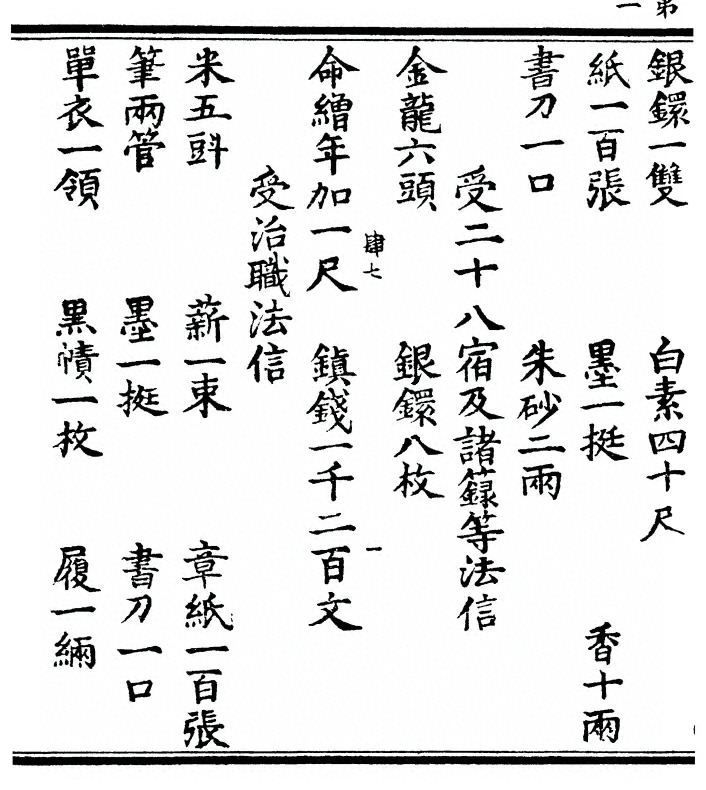 第一
銀鐶一雙 白素四十尺
紙一百張 墨一挺 香十兩
書刀一口 朱砂二兩
受二十八宿及諸籙等法信
金龍六頭 銀鐶八枚
肆七 一
命繒年加一尺 鎮錢一千二百文
受治職法信
米五㪷 薪一束 章紙一百張
筆兩管 墨一挺 書刀一口
單衣一領 黑幘一枚 履一緉